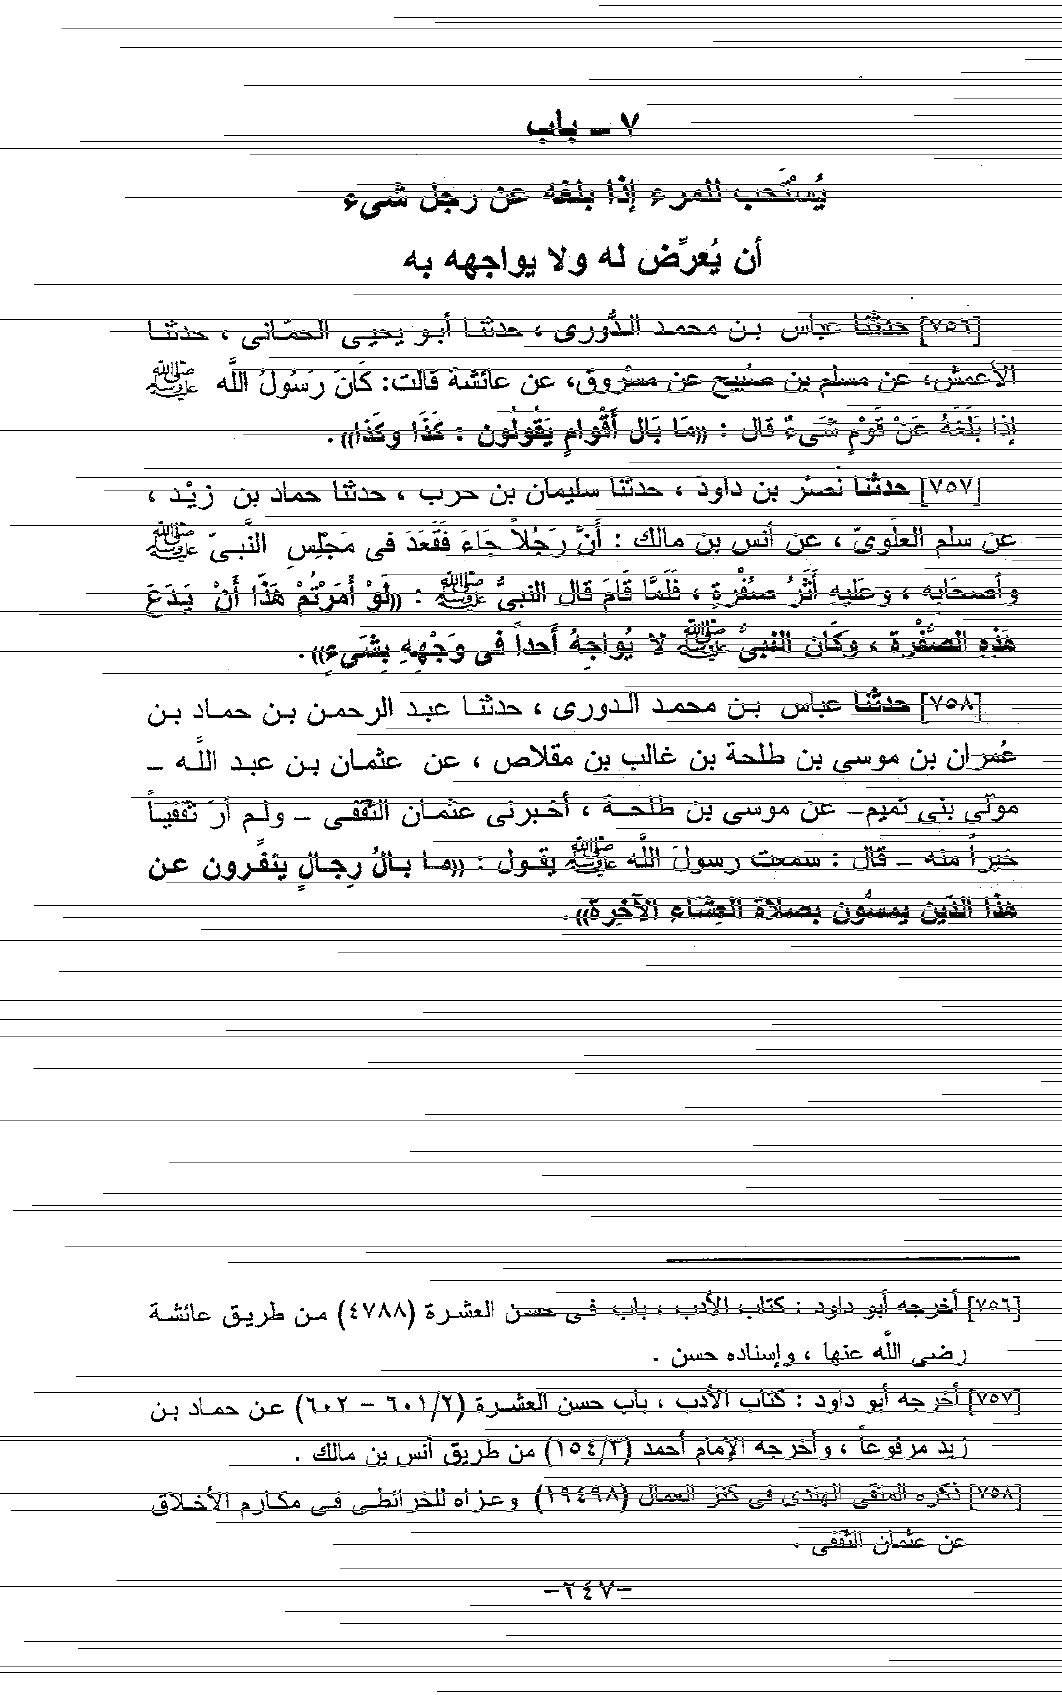 ٧ ــ باب
يُسْتَحب للمرء إذا بلغه عن رجل شىء
أن يُعرِّض له ولا يواجهه به
[٧٥٦] حدثنا عباس بن محمد الدُّورى ، حدثنا أبو يحيى الحمّانى ، حدثنا
الأعمش، عن مسلم بن صُبيح عن مسْروق، عن عائشة قالت: كَانَ رَسُولُ اللَّه ﷺ
إذا بَلَغَهُ عَنْ قَوْمٍ شَىءٌ قال : «مَا بَال أَقْوامٍ يَقُولُون : كَذَا وكَذا» .
[٧٥٧] حدثنا نصْرُ بن داودَ ، حدثنا سليمان بن حرب ، حدثنا حماد بن زيْد ،
عن سلم العلَوىّ ، عن أنس بن مالك : أَنَّ رَجُلاً جَاءَ فَقَعَدَ فى مَجْلِسِ النَّبىّ ﷺ
وأصحَابه ، وعليهِ أَثَرُ صُفْرةٍ ، فَلَمَّا قَامَ قال النبىُّ ﷺ : «لَوْ أمَرْتُمْ هَذَا أَنْ يَدَعَ
هَذِهِ الصُّفْرة ، وكَان النبىُّ ﷺ لا يُواجِهُ أحداً فى وَجْهِهِ بِشَىءٍ» .
[٧٥٨] حدثنا عباس بن محمد الدورى ، حدثنا عبد الرحمن بن حماد بن
عُمران بن موسى بن طلحة بن غالب بن مقلاص ، عن عثمان بن عبد اللَّه ــ
مولى بنى تميم– عن موسى بن طلحة ، أخبرنى عثمان الثقفى – ولم أرَ ثقفياً
خيراً منه – قال : سمعت رسولَ اللَّه ﷺ يقول : «ما بالُ رِجالٍ ينفِّرون عن
هذا الدّين يمسُّون بصلاة العِشاء الآخِرة» .
[٧٥٦] أخرجه أبو داود : كتاب الأدب ، باب فى حسن العشرة (٤٧٨٨) من طريق عائشة
رضى اللَّه عنها ، وإسناده حسن .
[٧٥٧] أخرجه أبو داود : كتاب الأدب ، باب حسن العشرة (٦٠١/٢ – ٦٠٢) عن حماد بن
زيد مرفوعاً ، وأخرجه الإمام أحمد (١٥٤/٣) من طريق أنس بن مالك .
[٧٥٨] ذكره المتقى الهندى فى كنز العمال (١٩٤٩٨) وعزاه للخرائطى فى مكارم الأخلاق
عن عثمان الثقفى .
–٢٤٧–